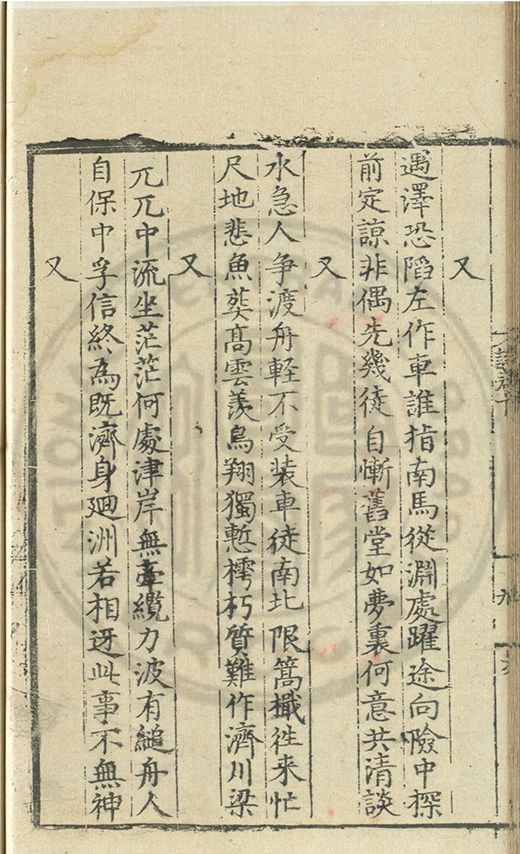 又
遇澤恐陷左作車誰指南馬從淵處躍途向險中探
前定諒非偶先幾徒自慚舊堂如夢裏何意共清談
又
水急人争渡舟軽不受装車徒南北限篙檝徃来忙
尺地悲魚葬髙雲羡鳥翔獨慙樗朽質難作濟川梁
又
兀兀中流坐茫茫何處津岸無牽纜力波有縋舟人
自保中孚信終為既濟身廻洲若相迓此事不無神
又